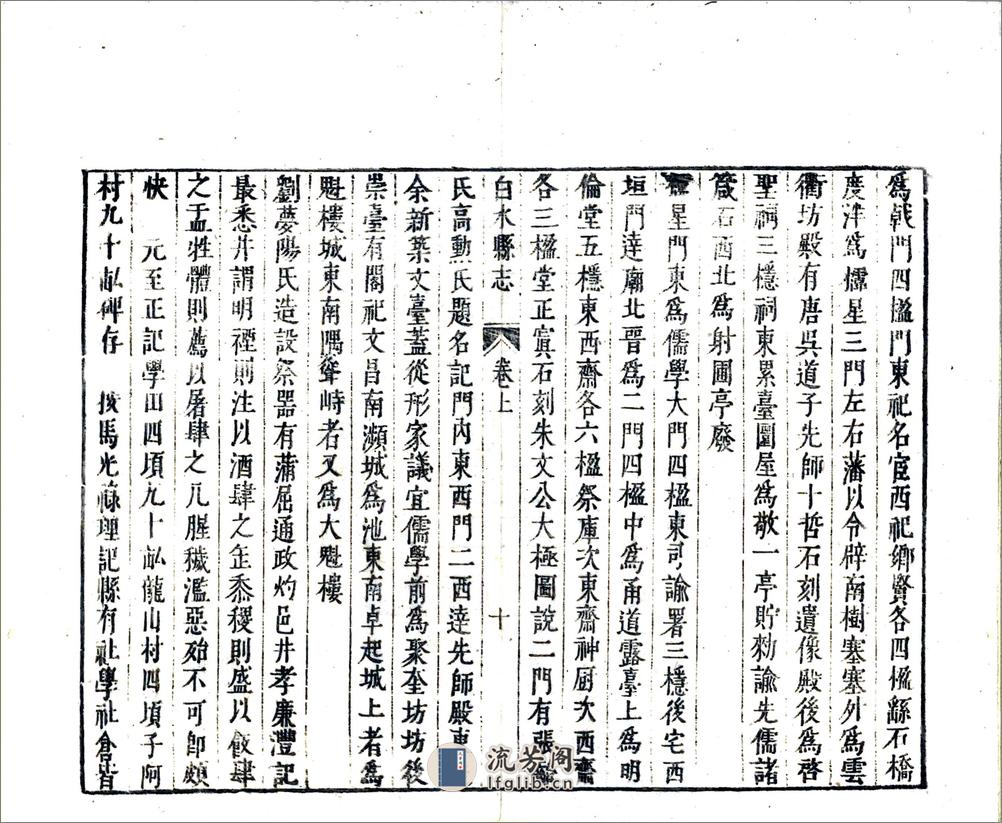 爲戟門四楹門東祀名宦西祀鄉賢各四楹繇石橋
度泮爲櫺星三門左右藩以令辟南樹塞塞外爲雲
衢坊殿有唐吳道子先師十哲石刻遺像殿後爲啓
聖祠三檼祠東累臺圜屋爲敬一亭貯勑諭先儒諸
箴石西北爲射圃亭廢
星門東爲儒學大門四楹東司諭署三檼後宅西
垣門達廟北晉爲二門四楹中爲甬道露臺上爲明
倫堂五檼東西齋各六楹祭庫次東齋神厨次西齋
各三楹堂正寘石刻朱文公大極圖說二門有張
白水縣志 卷上 十
氏高勳氏題名記門內東西門二西達先師殿東
余新築文臺蓋從形家議宜儒學前爲聚奎坊坊後
崇臺有閣祀文昌南瀕城爲池東南卓起城上者爲
魁樓城東南隅聳峙者又爲大魁樓
劉夢陽氏造設祭器有蒲屈通政灼邑井孝廉澧記
最悉井謂明禋則注以酒肆之缶黍稷則盛以飯肆
之盂牲體則薦以屠肆之几腥穢濫惡殆不可卽頗
快 元至正記學田四頃九十畝龍山村四頃子阿
村九十畝碑存 按馬光祿理記縣有社學社倉皆
流芳阁
lfglib.cn